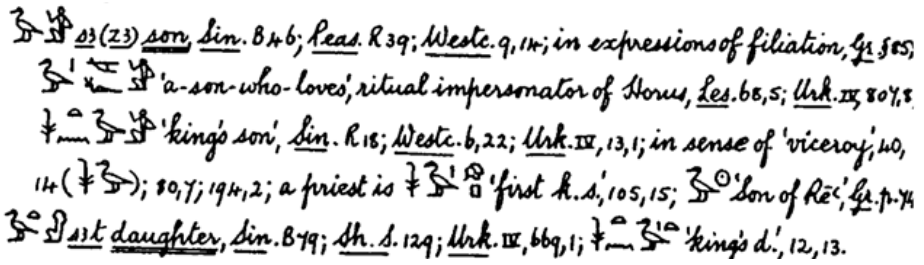 𓅭𓀀 s3 (z3) son, Sin. B 46; Peas. R 39; Westc. 9, 14; in expressions of filiation, Gr. §85;
𓅭𓏤 𓀀 'a-son-who-loves', ritual impersonator of Horus, Les. 68, 5; Urk. IV, 807, 8
𓇓𓏏𓈖𓅭𓀀 'king's son', Sin. R 18; Westc. 6, 22; Urk. IV, 13, 1; in sense of 'viceroy', 40,
14 (𓇓𓅭); 80, 7; 194, 2; a priest is 𓇓𓅭𓏤 'first k.s.', 105, 15; 𓅭𓇳 'Son of Rēꜥ', Gr. p. 74
𓅭𓏏𓁐 s3t daughter, Sin. B 79; Sh. S. 129; Urk. IV, 669, 1; 𓇓𓏏𓈖𓅭𓏏 'king's d.', 12, 13.